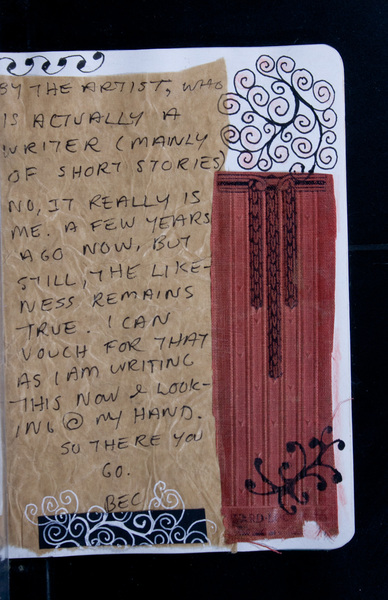 BY THE ARTIST, WHO
IS ACTUALLY A
WRITER (MAINLY
OF SHORT STORIES)
NO, IT REALLY IS
ME. A FEW YEARS
AGO NOW, BUT
STILL, THE LIKE-
NESS REMAINS
TRUE. I CAN
VOUCH FOR THAT
AS I AM WRITING
THIS NOW & LOOK-
ING @ MY HAND.
SO THERE YOU
GO.
BEC